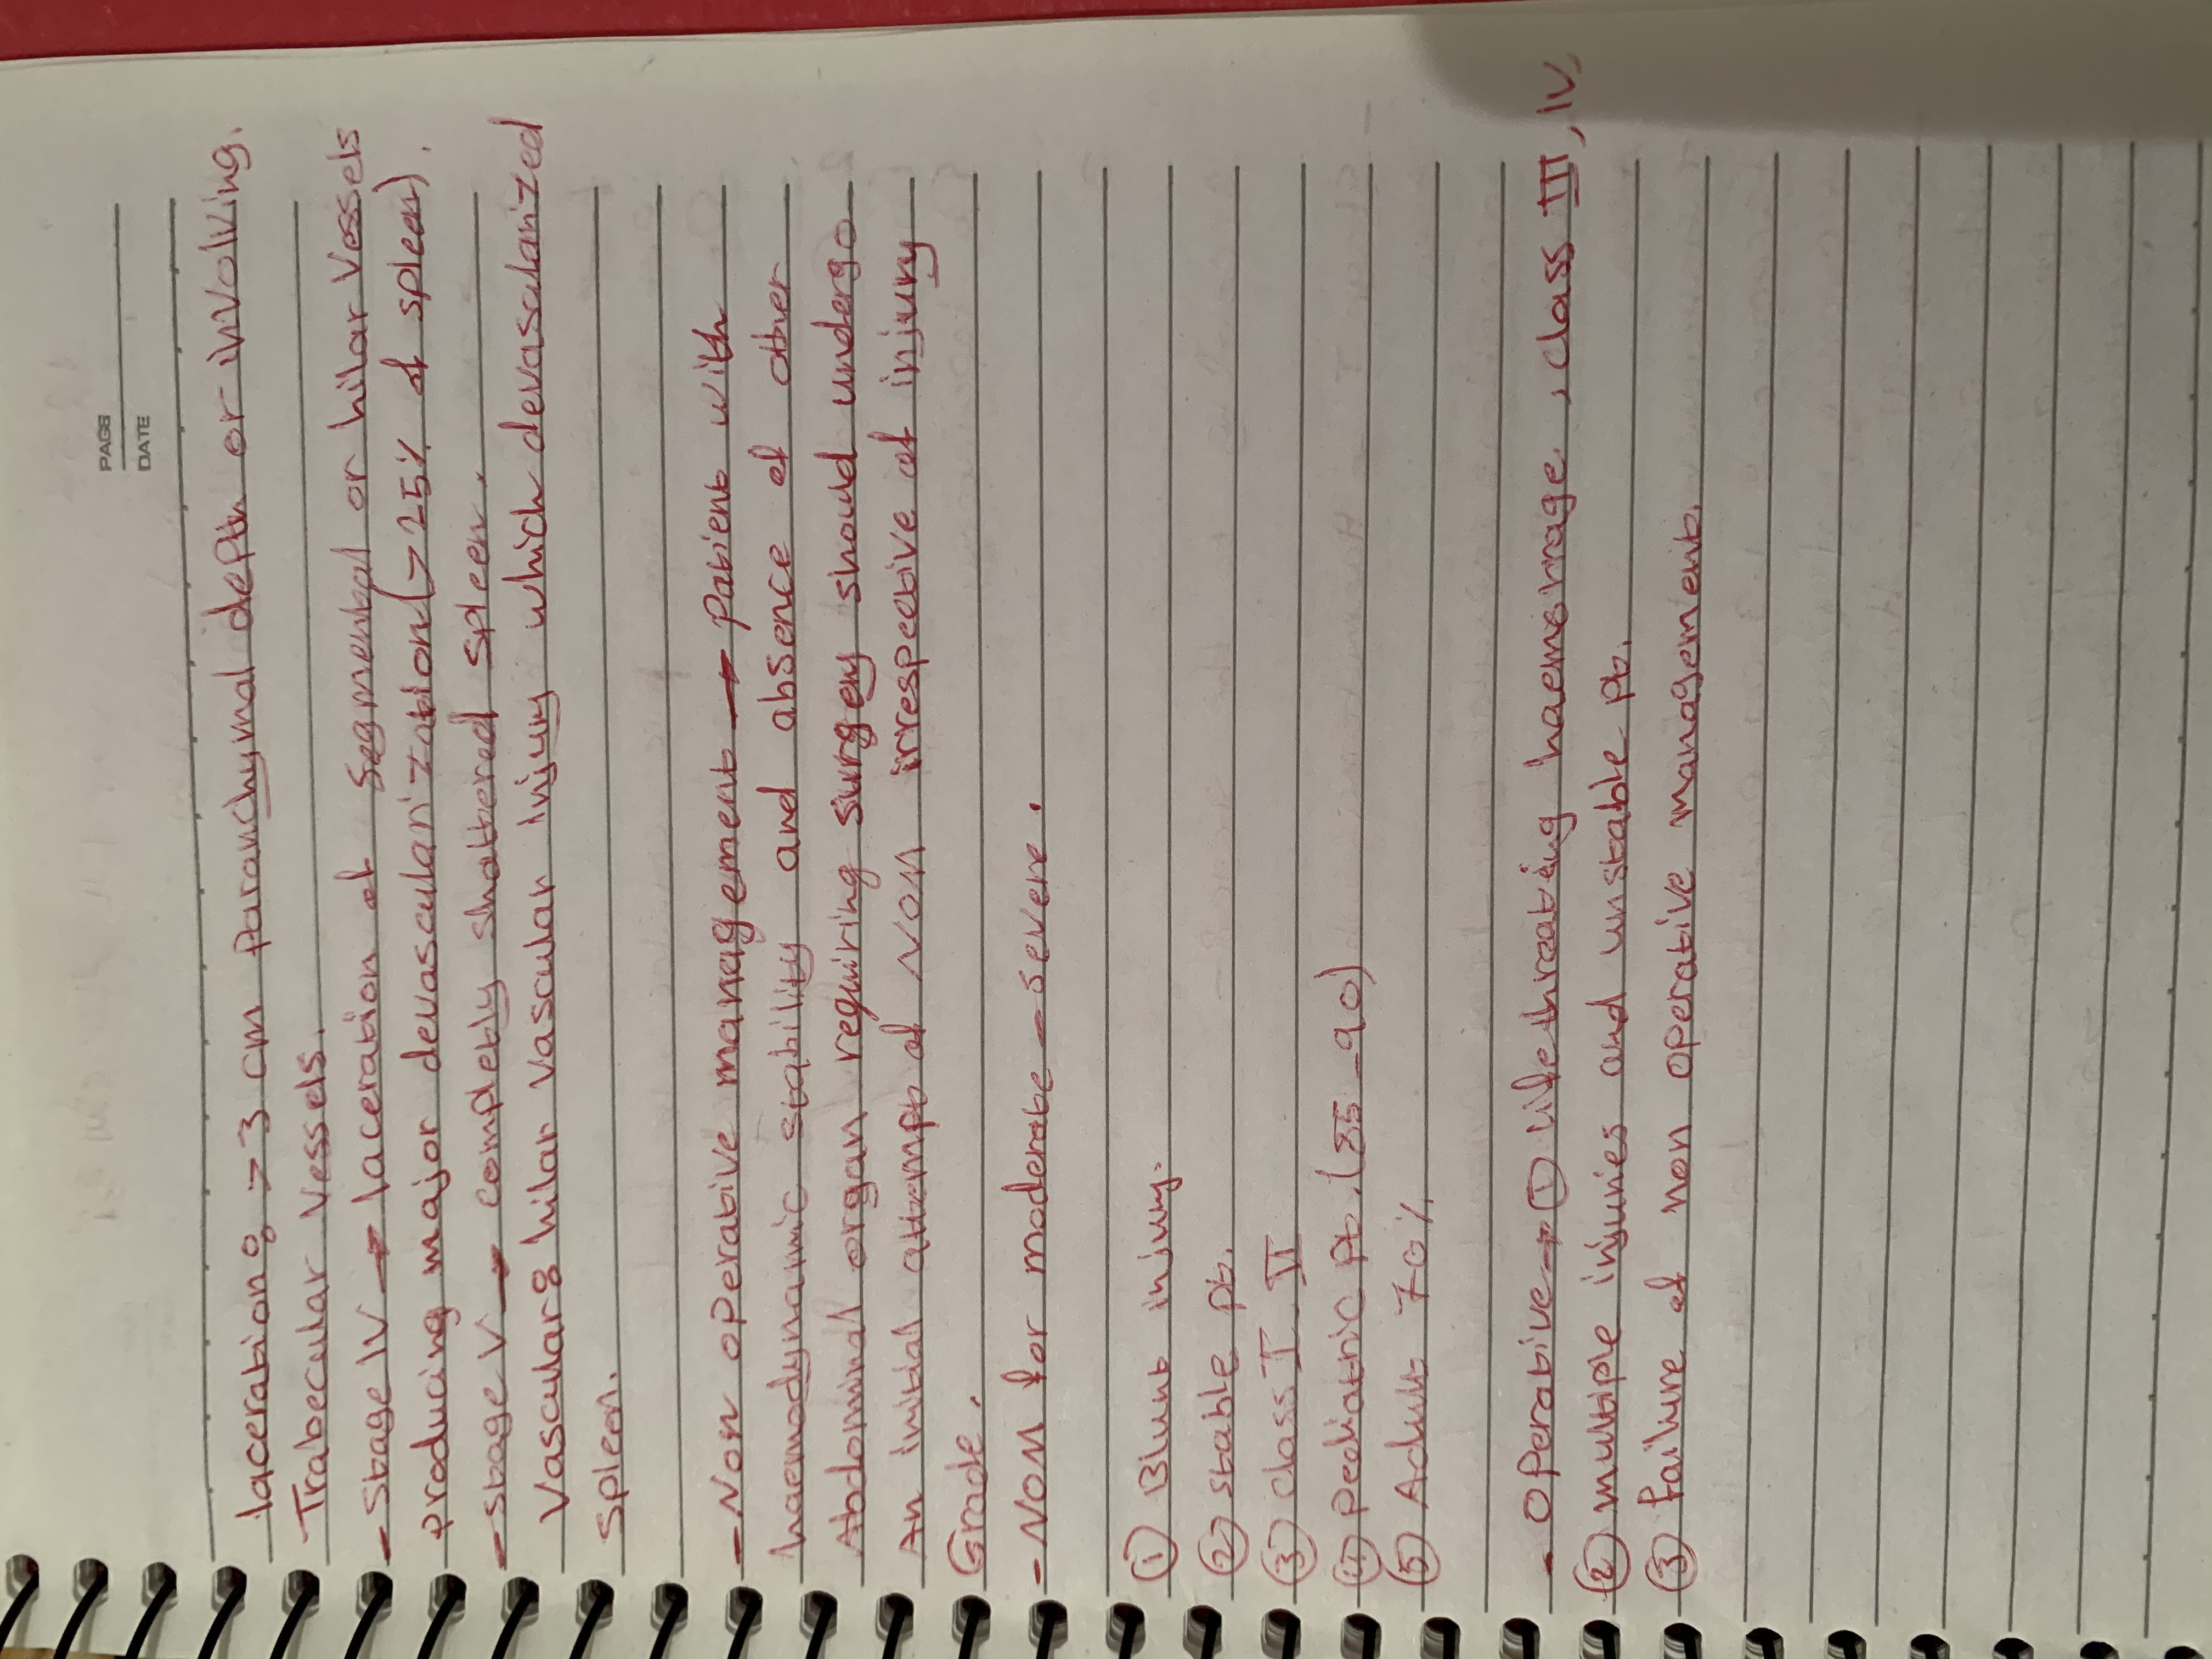 PAGE
DATE
laceration: > 3 cm paranchymal depth or inVolving.
Trabecular Vessels.
- Stage IV → laceration of Segmental or hilar Vessels
producing major devascularization (> 25% of spleen).
- Stage V → completly shattered spleen.
Vascular: hilar Vascular injury which devascularized
Spleen.
- Non operative management → Patient with
haemodynamic stability and absence of other
Abdominal organ requiring surgery should undergo
An initial attempt of NOM irrespective of injury
Grade.
- NOM for moderate - severe.
① Blunt injury.
② stable pt.
③ class I, II
④ Pediatric pt. (85 - 90)
⑤ Adult 70%
- Operative → ① Life threating haemorrage, class III, IV
② multiple injuries and unstable pt.
③ failure of non operative management.